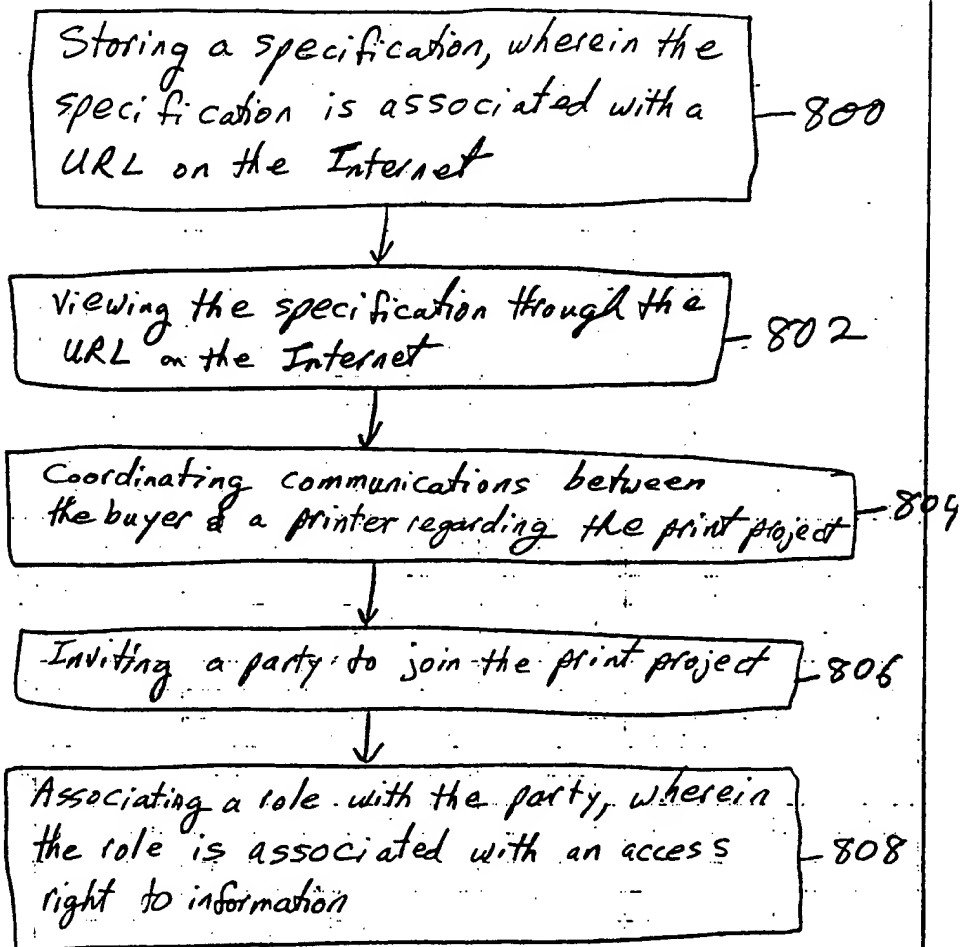 Storing a specification, wherein the
specification is associated with a
URL on the Internet
800
Viewing the specification through the
URL on the Internet
802
Coordinating communications between
the buyer & a printer regarding the print project
804
Inviting a party to join the print project
806
Associating a role with the party, wherein
the role is associated with an access
right to information
808